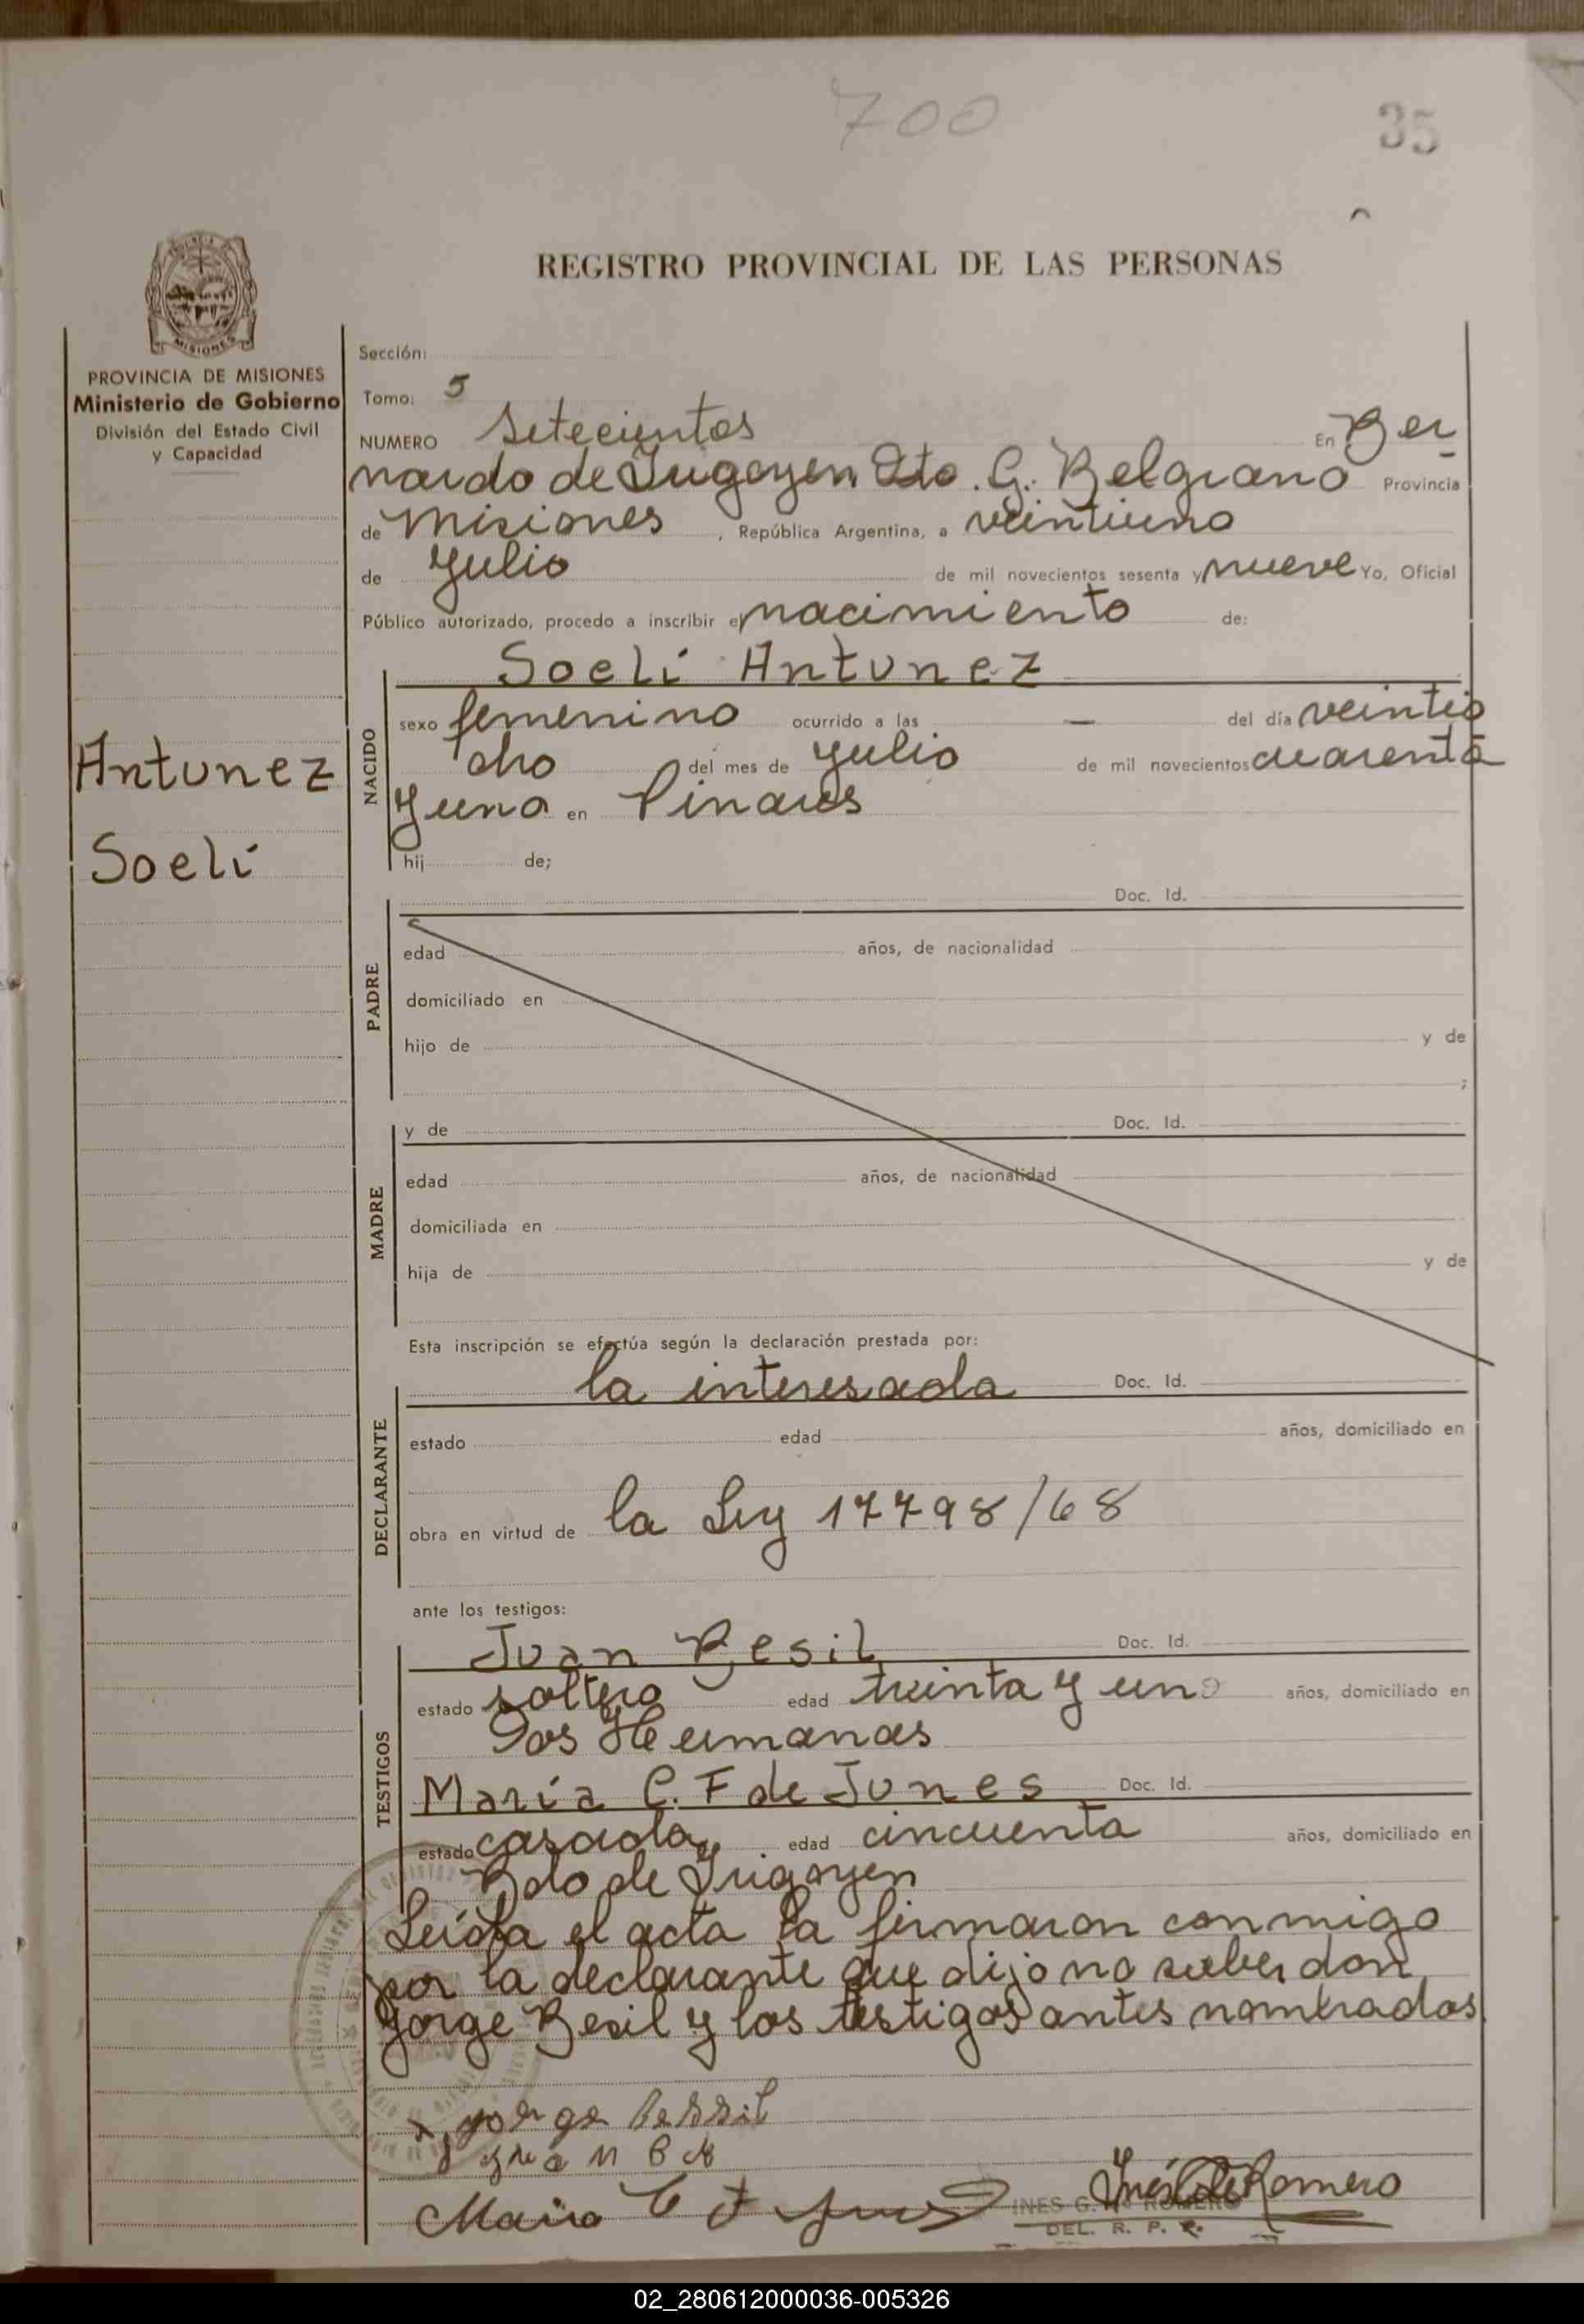 700
35
REGISTRO PROVINCIAL DE LAS PERSONAS
MISIONES
PROVINCIA DE MISIONES
Ministerio de Gobierno
División del Estado Civil
y Capacidad
Antunez
Soeli
Sección:
Tomo: 5
NUMERO Setecientos En Ber
nardo de Irigoyen Dto. G. Belgrano Provincia
de Misiones , República Argentina, a veintiuno
de Julio de mil novecientos sesenta y nueve Yo, Oficial
Público autorizado, procedo a inscribir el nacimiento de:
NACIDO
Soeli Antunez
sexo femenino ocurrido a las — del día veintio
cho del mes de Julio de mil novecientos cuarenta
y uno en Pinares
hij de;
PADRE
Doc. Id.
edad años, de nacionalidad
domiciliado en
hijo de y de
;
MADRE
y de Doc. Id.
edad años, de nacionalidad
domiciliada en
hija de y de
Esta inscripción se efectúa según la declaración prestada por:
DECLARANTE
la interesada Doc. Id.
estado edad años, domiciliado en
obra en virtud de la Ley 17798/68
ante los testigos:
TESTIGOS
Juan Besil Doc. Id.
estado soltero edad treinta y uno años, domiciliado en
Dos Hermanas
María C. F de Junes Doc. Id.
estado casada edad cincuenta años, domiciliado en
Bdo de Irigoyen
Leída el acta la firmaron conmigo
por la declarante que dijo no saber don
Jorge Besil y los testigos antes nombrados
Jorge Bessil
Maria C F
Inés G de Romero
INES G. DE ROMERO
DEL. R. P. P.
02_280612000036-005326